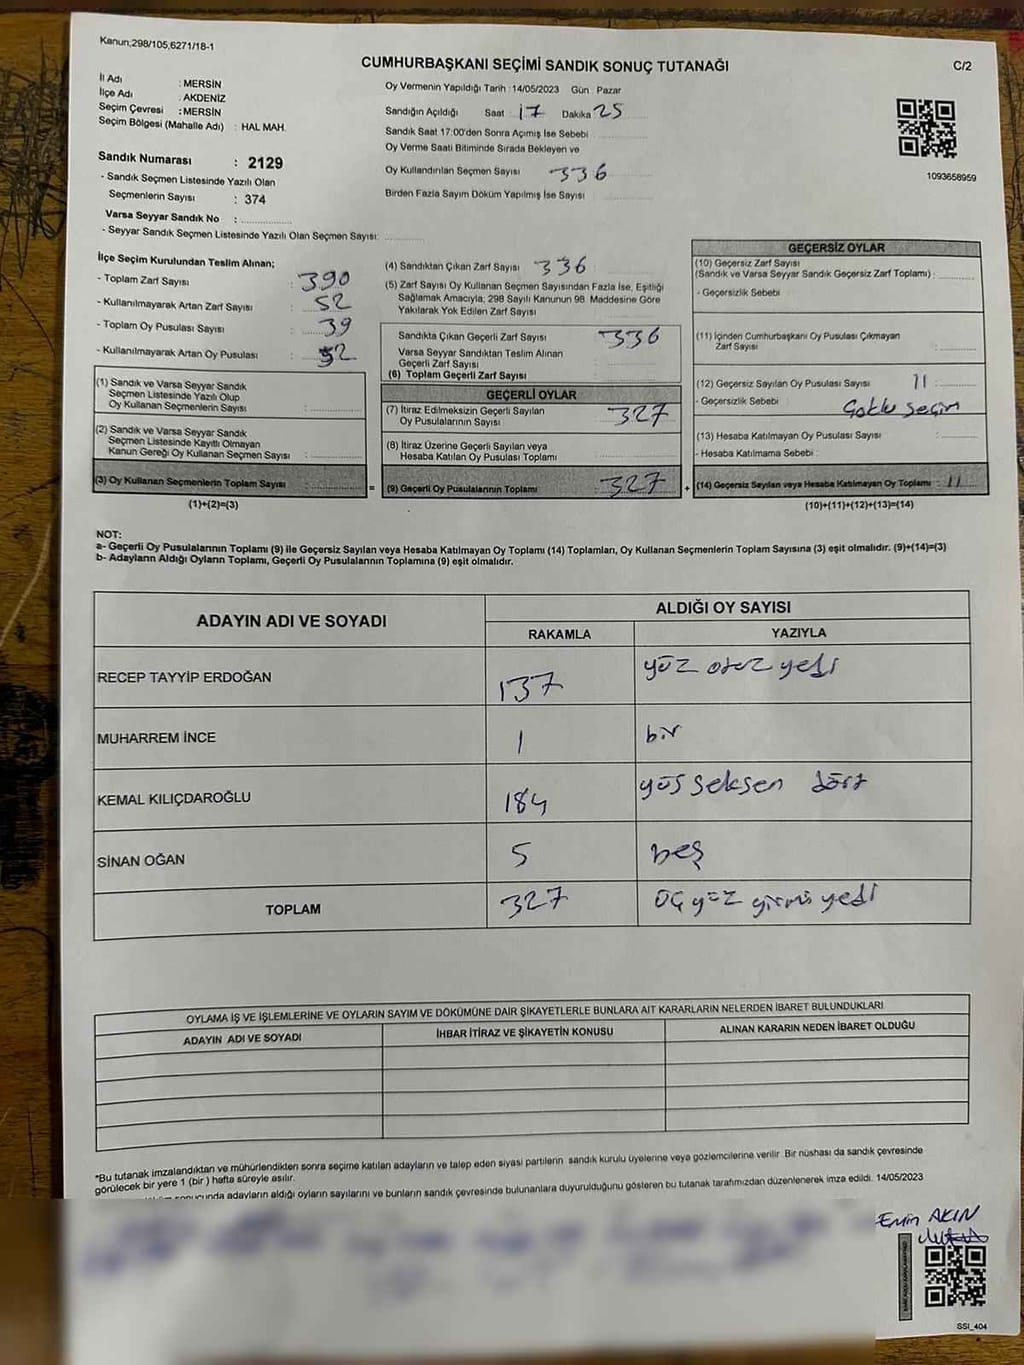 Kanun;298/105,6271/18-1
CUMHURBAŞKANI SEÇİMİ SANDIK SONUÇ TUTANAĞI
C/2
İl Adı : MERSİN
İlçe Adı : AKDENİZ
Seçim Çevresi : MERSİN
Seçim Bölgesi (Mahalle Adı) : HAL MAH.
Sandık Numarası : 2129
- Sandık Seçmen Listesinde Yazılı Olan
Seçmenlerin Sayısı : 374
Varsa Seyyar Sandık No :
- Seyyar Sandık Seçmen Listesinde Yazılı Olan Seçmen Sayısı:
Oy Vermenin Yapıldığı Tarih : 14/05/2023 Gün : Pazar
Sandığın Açıldığı Saat 17 Dakika 25
Sandık Saat 17:00'den Sonra Açımış İse Sebebi
Oy Verme Saati Bitiminde Sırada Bekleyen ve
Oy Kullandırılan Seçmen Sayısı 336
Birden Fazla Sayım Döküm Yapılmış İse Sayısı :
1093658959
İlçe Seçim Kurulundan Teslim Alınan;
- Toplam Zarf Sayısı : 390
- Kullanılmayarak Artan Zarf Sayısı : 52
- Toplam Oy Pusulası Sayısı : 39
- Kullanılmayarak Artan Oy Pusulası : 52
(1) Sandık ve Varsa Seyyar Sandık
Seçmen Listesinde Yazılı Olup
Oy Kullanan Seçmenlerin Sayısı :
(2) Sandık ve Varsa Seyyar Sandık
Seçmen Listesinde Kayıtlı Olmayan
Kanun Gereği Oy Kullanan Seçmen Sayısı :
(3) Oy Kullanan Seçmenlerin Toplam Sayısı :
(1)+(2)=(3)
(4) Sandıktan Çıkan Zarf Sayısı : 336
(5) Zarf Sayısı Oy Kullanan Seçmen Sayısından Fazla İse, Eşitliği
Sağlamak Amacıyla; 298 Sayılı Kanunun 98. Maddesine Göre
Yakılarak Yok Edilen Zarf Sayısı :
Sandıkta Çıkan Geçerli Zarf Sayısı : 336
Varsa Seyyar Sandıktan Teslim Alınan
Geçerli Zarf Sayısı :
(6) Toplam Geçerli Zarf Sayısı :
GEÇERLİ OYLAR
(7) İtiraz Edilmeksizin Geçerli Sayılan
Oy Pusulalarının Sayısı : 327
(8) İtiraz Üzerine Geçerli Sayılan veya
Hesaba Katılan Oy Pusulası Toplamı :
= (9) Geçerli Oy Pusulalarının Toplamı : 327 +
GEÇERSİZ OYLAR
(10) Geçersiz Zarf Sayısı
(Sandık ve Varsa Seyyar Sandık Geçersiz Zarf Toplamı) :
- Geçersizlik Sebebi :
(11) İçinden Cumhurbaşkanı Oy Pusulası Çıkmayan
Zarf Sayısı :
(12) Geçersiz Sayılan Oy Pusulası Sayısı : 11
- Geçersizlik Sebebi : Çoklu Seçim
(13) Hesaba Katılmayan Oy Pusulası Sayısı :
- Hesaba Katılmama Sebebi :
(14) Geçersiz Sayılan veya Hesaba Katılmayan Oy Toplamı : 11
(10)+(11)+(12)+(13)=(14)
NOT:
a- Geçerli Oy Pusulalarının Toplamı (9) ile Geçersiz Sayılan veya Hesaba Katılmayan Oy Toplamı (14) Toplamları, Oy Kullanan Seçmenlerin Toplam Sayısına (3) eşit olmalıdır. (9)+(14)=(3)
b- Adayların Aldığı Oyların Toplamı, Geçerli Oy Pusulalarının Toplamına (9) eşit olmalıdır.
ADAYIN ADI VE SOYADI ALDIĞI OY SAYISI
RAKAMLA YAZIYLA
RECEP TAYYİP ERDOĞAN 137 yüz otuz yedi
MUHARREM İNCE 1 bir
KEMAL KILIÇDAROĞLU 184 yüz seksen dört
SİNAN OĞAN 5 beş
TOPLAM 327 üç yüz yirmi yedi
OYLAMA İŞ VE İŞLEMLERİNE VE OYLARIN SAYIM VE DÖKÜMÜNE DAİR ŞİKAYETLERLE BUNLARA AİT KARARLARIN NELERDEN İBARET BULUNDUKLARI
ADAYIN ADI VE SOYADI İHBAR İTİRAZ VE ŞİKAYETİN KONUSU ALINAN KARARIN NEDEN İBARET OLDUĞU
*Bu tutanak imzalandıktan ve mühürlendikten sonra seçime katılan adayların ve talep eden siyasi partilerin sandık kurulu üyelerine veya gözlemcilerine verilir. Bir nüshası da sandık çevresinde
görülecek bir yere 1 (bir) hafta süreyle asılır.
sonucunda adayların aldığı oyların sayılarını ve bunların sandık çevresinde bulunanlara duyurulduğunu gösteren bu tutanak tarafımızdan düzenlenerek imza edildi. 14/05/2023
Emin AKIN
SSİ_404